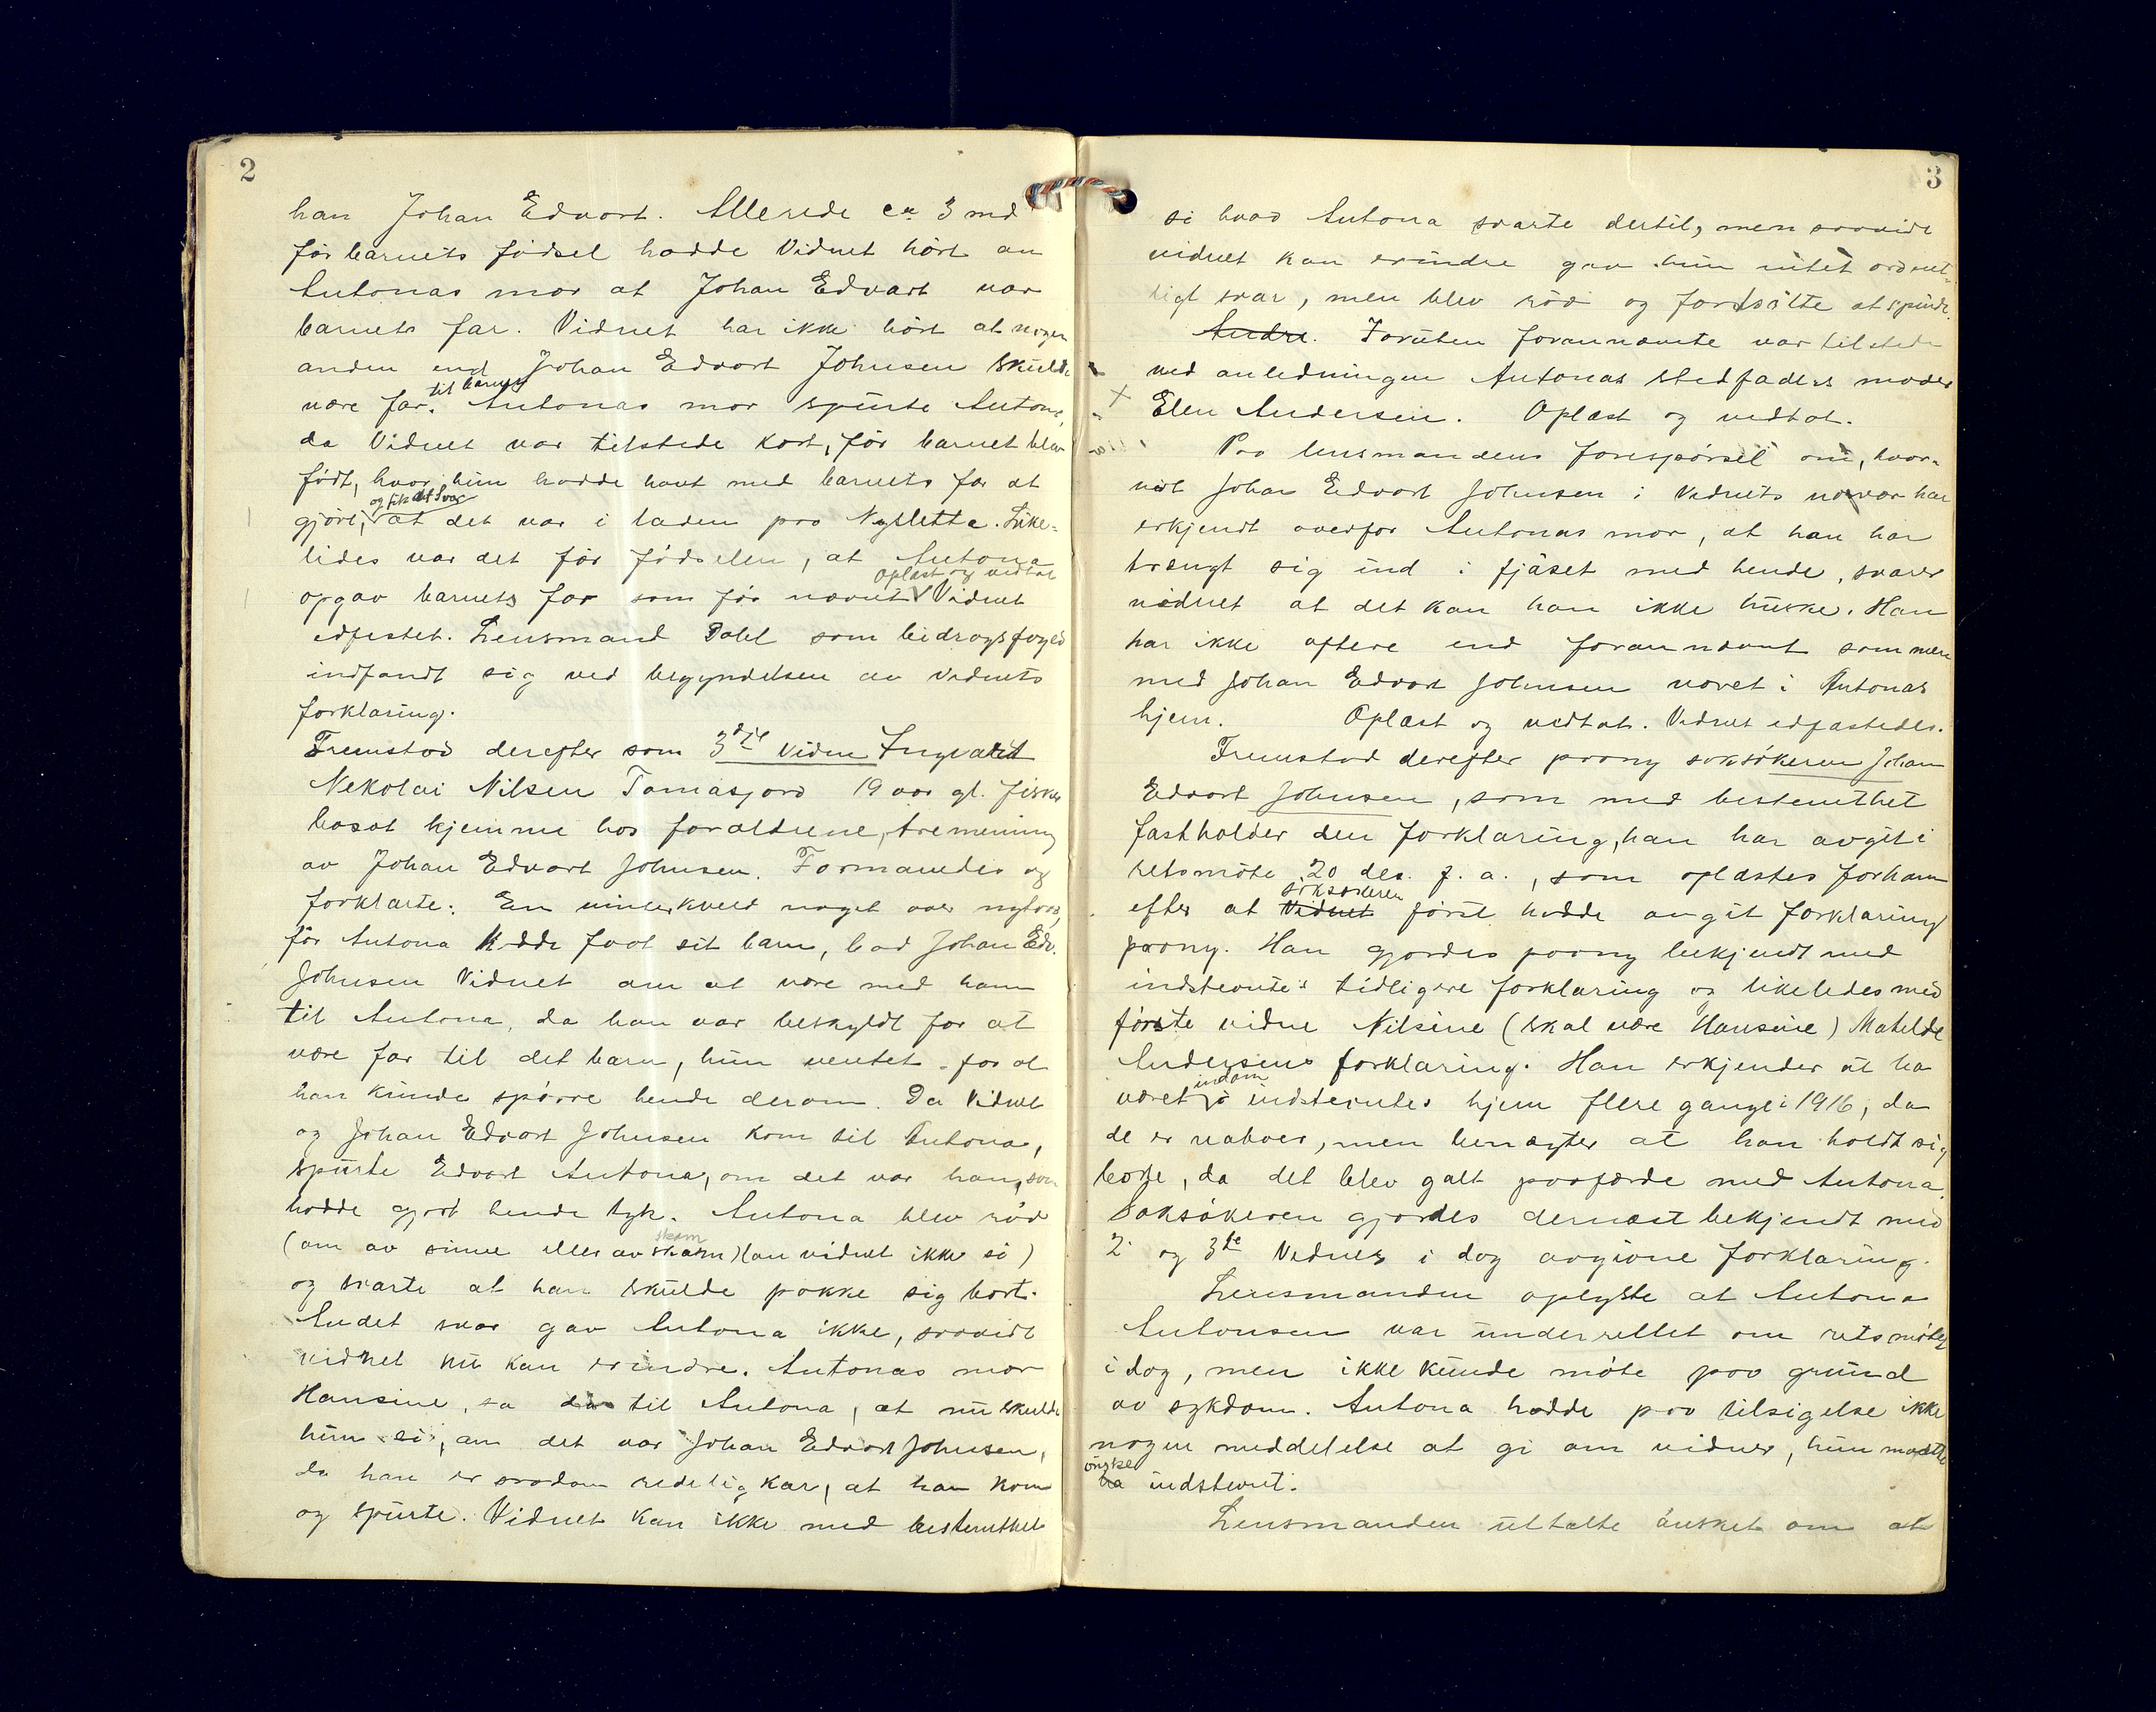 2
han Johan Edvart. Allerede ca 3 md
før barnets fødsel hadde Vidnet hört av
Antonas mor at Johan Edvart var
barnets far. Vidnet har ikke hört at nogen
anden end Johan Edvart Johnsen skulde
til barnet
være far. Antonas mor spurte Antona,
da Vidnet var tilstede kort, før barnet blev
født, hvor hun hadde havt med barnets far at
og fik det svar
gjöre, at det var i laden paa Nysletta. Like-
ledes var det før fødselen, at Antona
Oplæst og vedtat
opgav barnets far som før nævnt Vidnet
edfestet. Lensmand Dahl som bidragsfoged
indfandt sig ved begyndelsen av vidnets
forklaring.
Fremstod derefter som 3dje vidne Ingvald
Nekolai Nilsen Tomasjord 19 aar gl. fisker
bosat hjemme hos forældrene, tremenning
av Johan Edvart Johnsen. Formanedes og
forklarte: En vinterkveld noget over nytaar,
før Antona hadde faat sit barn, bad Johan Edv.
Johnsen Vidnet om at være med ham
til Antona, da han var beskyldt for at
være far til det barn, hun ventet for at
han kunde spørre hende derom. Da Vidnet
og Johan Edvart Johnsen kom til Antona,
spurte Edvart Antona, om det var han, som
hadde gjort hende tyk. Antona blev rød
skam
(om av sinne eller av skam) (kan vidnet ikke si)
og svarte at han skulde pakke sig bort.
Andet svar gav Antona ikke, saavidt
vidnet nu kan erindre. Antonas mor
Hansine, sa da til Antona, at nu skulde
hun si, om det var Johan Edvart Johnsen,
da han er saadan redelig kar, at han kom
og spurte. Vidnet kan ikke med bestemthet
3
si hvad Antona svarte dertil, men saavidt
vidnet kan erindre gav hun intet ordent-
ligt svar, men blev rød og fortsatte at spinde.
Andre. Foruten forannævnte var tilstede
ved anledningen Antonas stedfaders moder
Elen Andersen. Oplæst og vedtat.
Paa lensmandens forespørsel om, hvor-
vidt Johan Edvart Johnsen i Vidnets nærvær har
erkjendt overfor Antonas mor, at han har
trængt sig ind i fjøset med hende, svarer
vidnet at det kan han ikke huske. Han
har ikke oftere end forannævnt sammen
med Johan Edvart Johnsen været i Antonas
hjem. Oplæst og vedtat. Vidnet edfæstedes.
Fremstod derefter paany saksøkeren Johan
Edvart Johnsen, som med bestemthet
fastholder den forklaring, han har avgit i
retsmøte 20 des. f. a., som oplæstes for ham
saksøkeren
efter at Vidnet først hadde avgit forklaring
paany. Han gjordes paany bekjendt med
indstevnte's tidligere forklaring og likeledes med
første vidne Nilsine (skal være Hansine) Matelde
Andersens forklaring. Han erkjender at ha
indom
været i indstevntes hjem flere gange i 1916, da
de er naboer, men benægter at han holdt sig
borte, da det blev galt paafærde med Antona.
Saksøkeren gjordes dernæst bekjendt med
2. og 3te Vidnes i dag avgivne forklaring.
Lensmanden oplyste at Antona
Antonsen var underrettet om retsmøtet
i dag, men ikke kunde møte paa grund
av sykdom. Antona hadde paa tilsigelse ikke
nogen meddelelse at gi om vidner, hun maatte
ønske
ha indstevnt.
Lensmanden uttalte ønsket om at